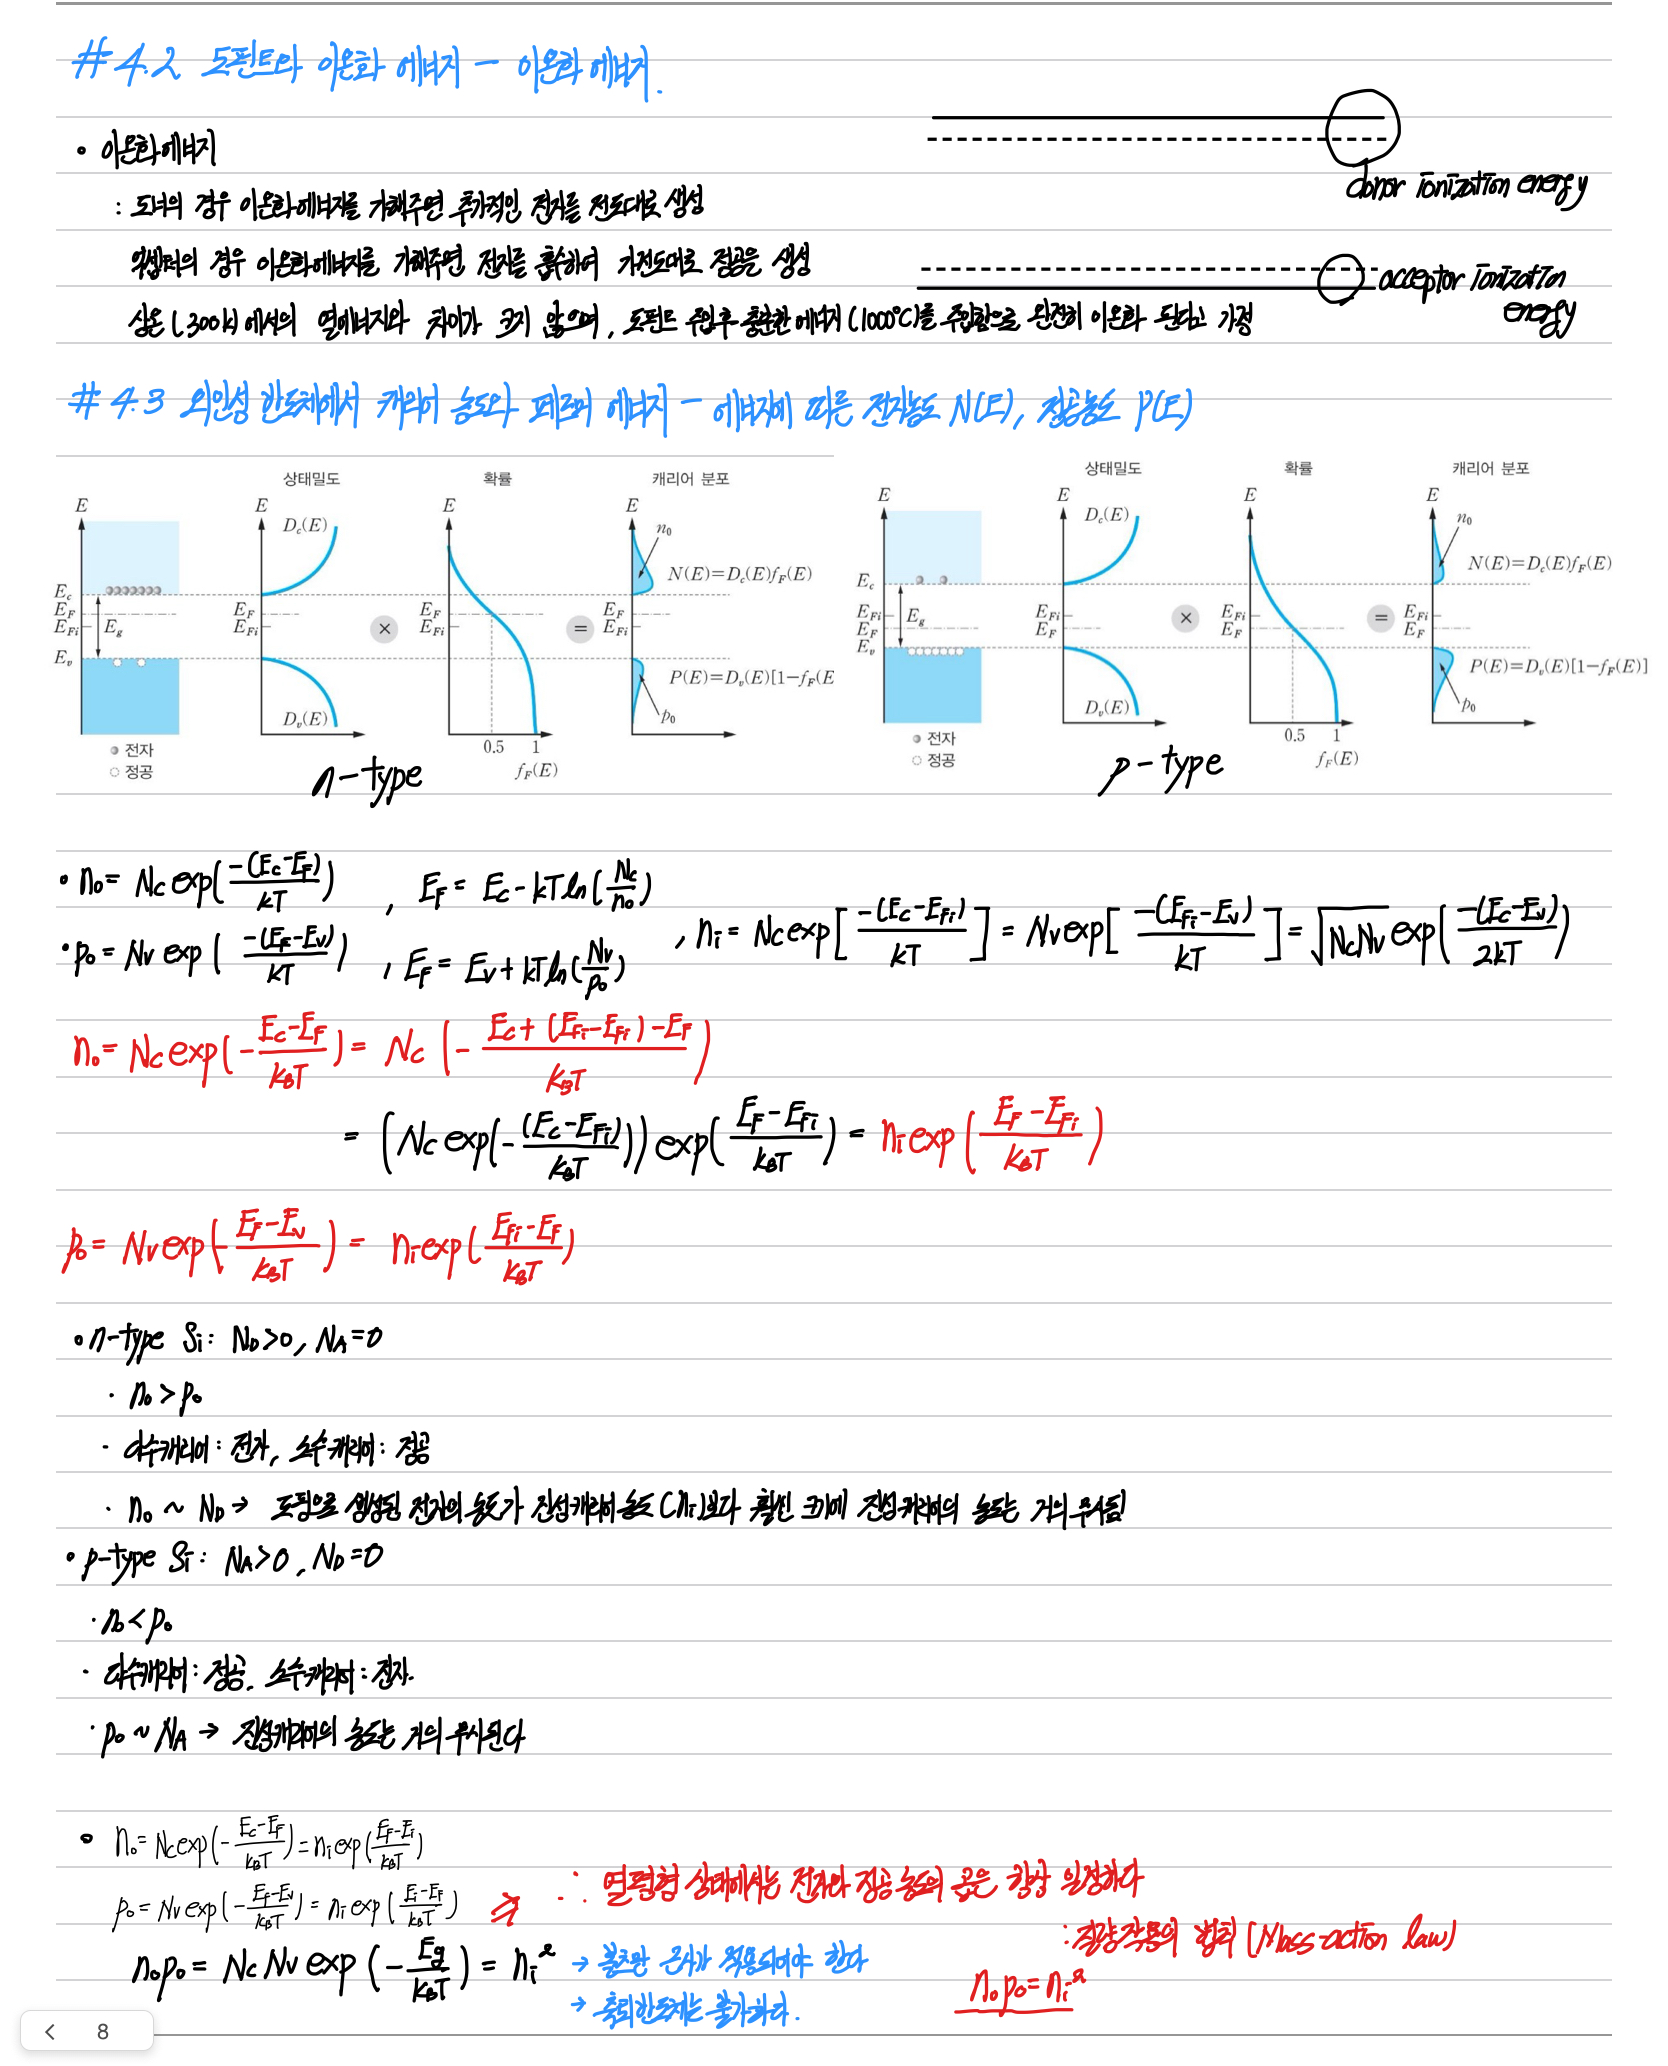 # 4.2 도펀트와 이온화 에너지 - 이온화 에너지.
• 이온화에너지
: 도너의 경우 이온화에너지를 가해주면 추가적인 전자를 전도대로 생성
억셉터의 경우 이온화에너지를 가해주면 전자를 흡수하여 가전도대로 정공을 생성
상온(300k)에서의 열에너지와 차이가 크지 않으며, 도펀트 주입후 충분한 에너지(1000°C)를 주입함으로 완전히 이온화 된다고 가정
donor ionization energy
acceptor ionization
energy
# 4.3 외인성 반도체에서 캐리어 농도와 페르미 에너지 - 에너지에 따른 전자농도 N(E), 정공농도 P(E)
상태밀도 확률 캐리어 분포
E E E E
D_c(E) n_0
N(E)=D_c(E)f_F(E)
E_c
E_F E_F E_F E_F
E_Fi E_g E_Fi × E_Fi = E_Fi
E_v
P(E)=D_v(E)[1−f_F(E
D_v(E) p_0
0.5 1
전자
정공
f_F(E)
n-type
상태밀도 확률 캐리어 분포
E E E E
D_c(E) n_0
N(E)=D_c(E)f_F(E)
E_c
E_Fi E_g E_Fi × E_Fi = E_Fi
E_F E_F E_F E_F
E_v
P(E)=D_v(E)[1−f_F(E)]
D_v(E) p_0
0.5 1
전자
정공
f_F(E)
p-type
• n₀ = Nc exp(-(Ec-E_F)/kT) , E_F = Ec - kT ln(Nc/n₀)
• p₀ = Nv exp(-(E_F-Ev)/kT) , E_F = Ev + kT ln(Nv/p₀)
, n_i = Nc exp[-(Ec-E_Fi)/kT] = Nv exp[-(E_Fi-Ev)/kT] = √(NcNv) exp(-(Ec-Ev)/2kT)
n₀ = Nc exp(-(Ec-E_F)/k_BT) = Nc (-(Ec+(E_Fi-E_Fi)-E_F)/k_BT)
= (Nc exp(-(Ec-E_Fi)/k_BT)) exp((E_F-E_Fi)/k_BT) = n_i exp((E_F-E_Fi)/k_BT)
p₀ = Nv exp(-(E_F-Ev)/k_BT) = n_i exp((E_Fi-E_F)/k_BT)
• n-type Si: N_D>0, N_A=0
· n₀ > p₀
·다수캐리어: 전자, 소수캐리어: 정공
· n₀ ~ N_D → 도핑으로 생성된 전자의 농도가 진성캐리어농도(n_i)보다 훨씬 크기에 진성캐리어의 농도는 거의 무시됨
• p-type Si: N_A>0, N_D=0
· n₀ < p₀
· 다수캐리어: 정공, 소수캐리어: 전자.
· p₀ ~ N_A → 진성캐리어의 농도는 거의 무시된다
• n₀ = Nc exp(-(Ec-E_F)/k_BT) = n_i exp((E_F-E_i)/k_BT)
p₀ = Nv exp(-(E_F-Ev)/k_BT) = n_i exp((E_i-E_F)/k_BT) ⇒ ∴ 열평형 상태에서는 전자와 정공 농도의 곱은 항상 일정하다
: 질량작용의 법칙 (Mass-action law)
n₀p₀ = Nc Nv exp(-Eg/k_BT) = n_i² → 볼츠만 근사가 적용되어야 한다
n₀p₀=n_i²
→ 축퇴반도체는 불가하다.
8